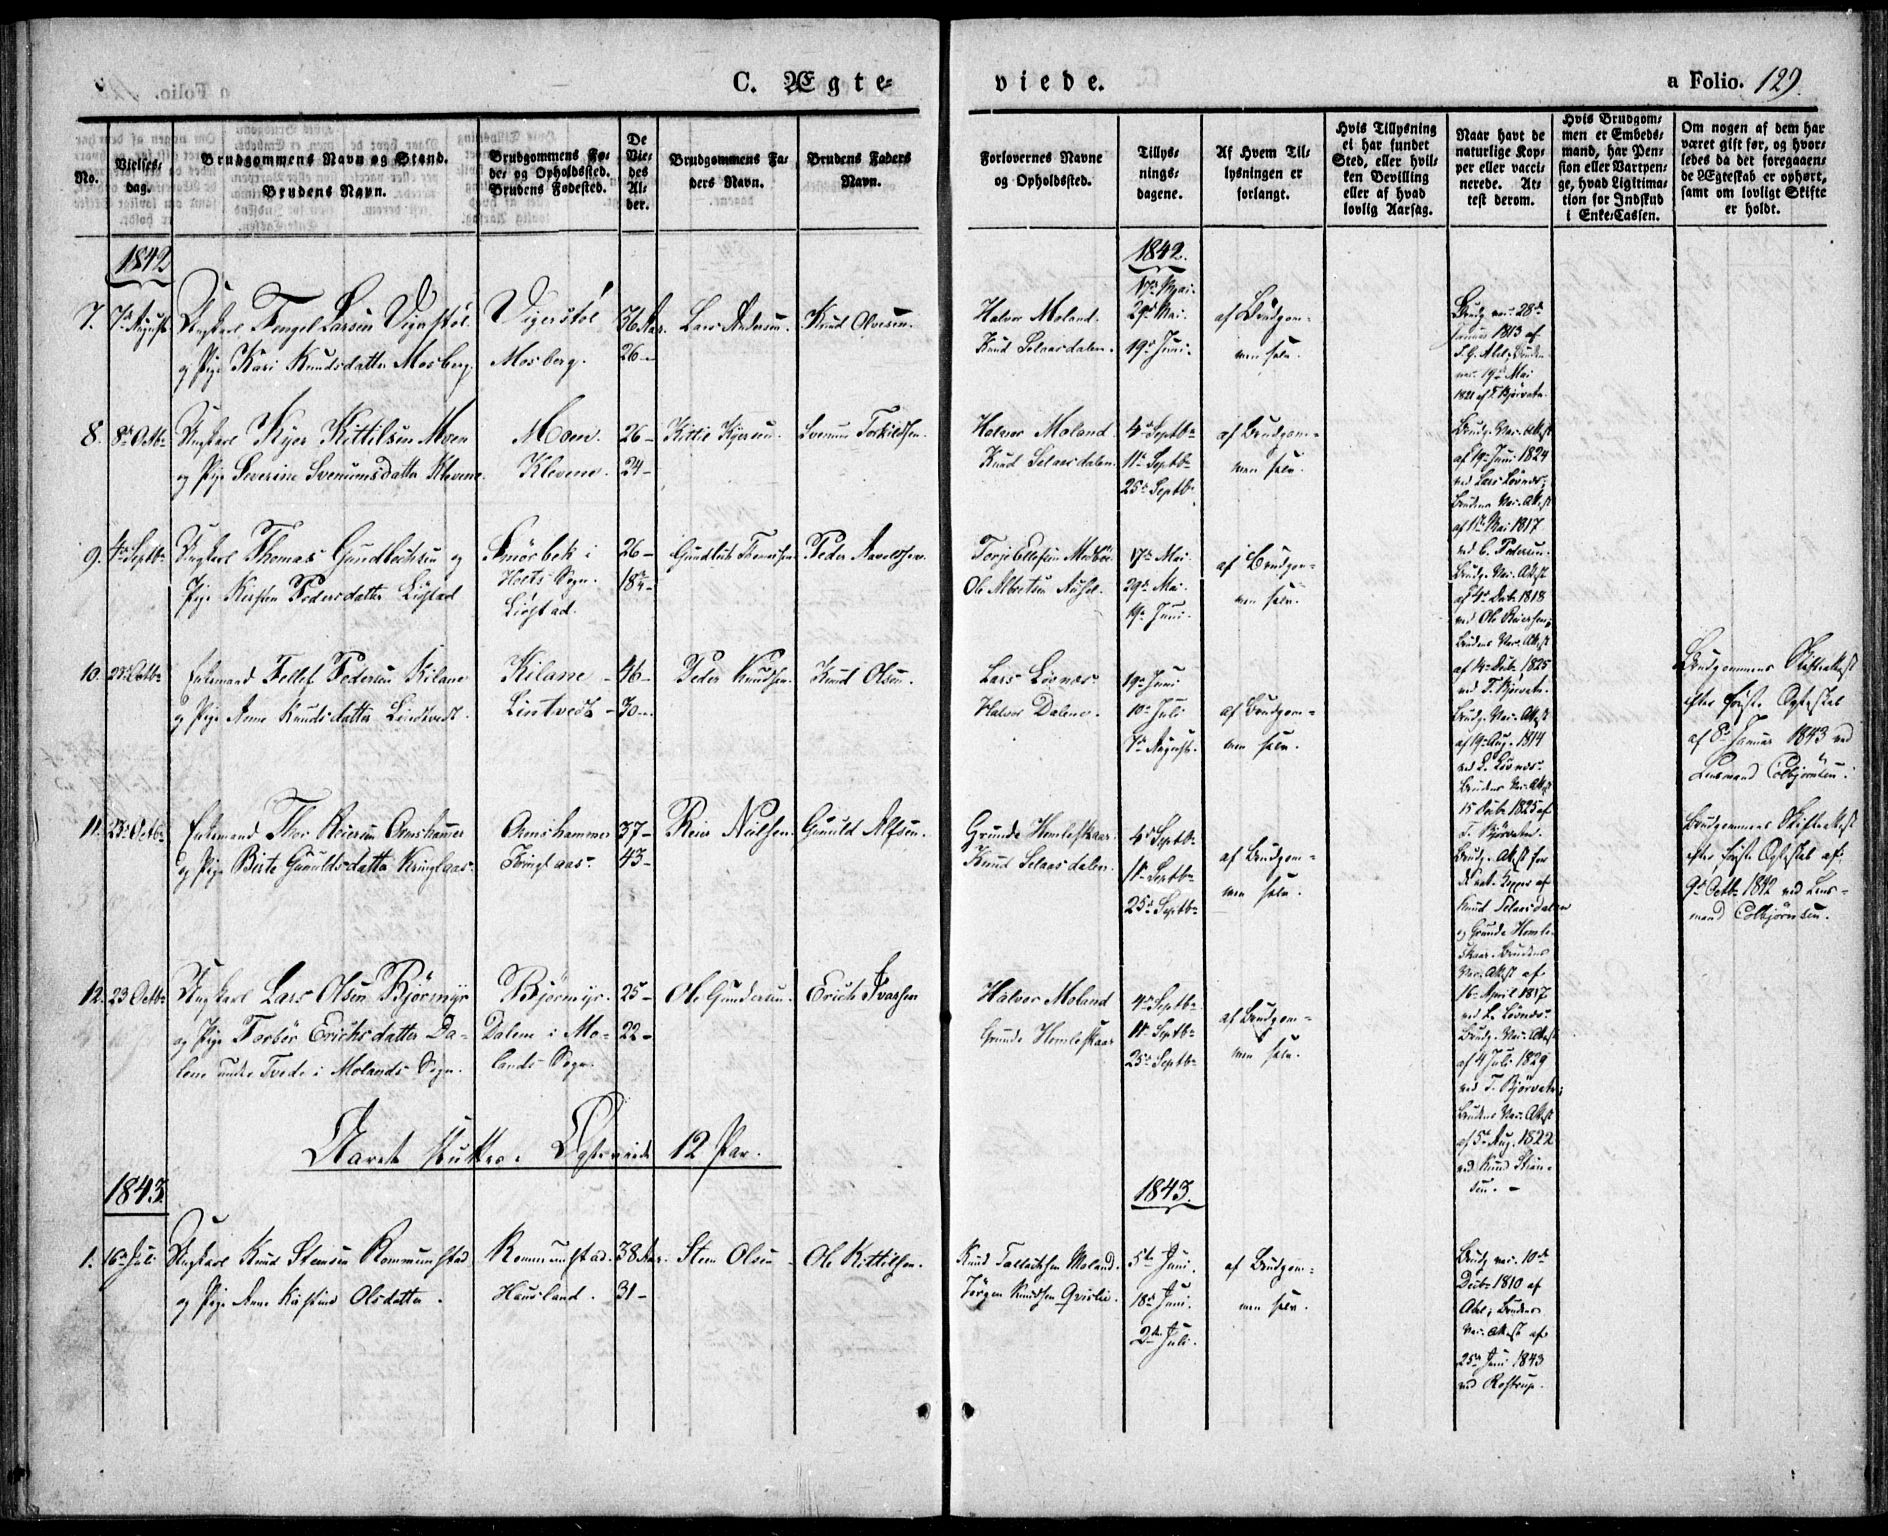 C. Ægte-
viede.
a Folio. 129.
No.
Vielses-
dag.
Brudgommens Navn og Stand.
Brudens Navn.
Brudgommens Fø-
de- og Opholdssted.
Brudens Fødested.
De
Vie-
des
Al-
der.
Brudgommens Fa-
ders Navn.
Brudens Faders
Navn.
Forlovernes Navne
og Opholdssted.
Tillys-
nings-
dagene.
Af Hvem Til-
lysningen er
forlangt.
Hvis Tillysning
ei har fundet
Sted, eller hvil-
ken Bevilling
eller af hvad
lovlig Aarsag.
Naar havt de
naturlige Kop-
per eller vacci-
nerede. At-
test derom.
Hvis Brudgom-
men er Embeds-
mand, har Pen-
sion eller Vartpen-
ge, hvad Ligitima-
tion for Indskud
i Enke-Cassen.
Om nogen af dem har
været gift før, og hvor-
ledes da det foregaaen-
de Ægteskab er ophørt,
samt om lovligt Skifte
er holdt.
1842
1842.
7. 7de August
Ungkarl Fengel Larsen Vigerstöl
og Pige Kari Knudsdatter Mosberg.
Vigerstöl
Mosberg.
36 Aar.
26 -
Lars Andersen.
Knud Olvesen.
Halvor Moland.
Knud Selaasdalen.
17de Mai.
29de Mai.
19de Juni.
af Brudgom-
men selv.
Brudg. vac. 28de
Januar 1813 af
19de Mai
8. 8de Octbr
Ungkarl Kjer Kittilsen Moen
og Pige Severine Svenumsdatter Klevene.
Moen.
Klevene.
26 -
24 -
Kittil Kjersen.
Svenum Torkildsen.
Halvor Moland
Knud Selaasdalen.
4de Septbr
11te Septbr
25de Septbr
af Brudgom-
men selv.
Brudg. Vac. Attest
af 19de Juni 1824
ved Lars Lövnes;
Brudens Vac. Attest
af 11te Mai 1817
ved C. Pedersen.
9. 4de Septbr
Ungkarl Thomas Gundlechsen og
Pige Kirsten Pedersdatter Liöstad
Smörbek i
Holts Sogn.
Liöstad.
26 -
18 -
Peder Aanelssen.
Ole Albertsen
17de Mai
29de Mai.
19de Juni.
af Brudgom-
men selv.
Brudg. Vac. Attest
af 4de Decbr 1818
ved Ole Reiersen;
Brudens Vac. Attest
af 14de Decbr 1825
ved T. Bjorvatn.
10. 23de Octbr
Enkemand Tellef Pedersen Kilane
og Pige Anne Knudsdatter Lindtvedt.
Kilane
Lintvedt
46 -
30 -
Peder Knudsen.
Knud Olsen.
Lars Lövnes.
Halvor Dalene.
19de Juni
10de Juli
7de August.
af Brudgom-
men selv.
Brudg. Vac. Attest
af 19de Aug. 1814
ved L. Lövnes.
Brudens Vac. Attest
15 Decbr 1825 af
T. Bjorvatn.
Brudgommens Skifteattest
efter förste Ægteskab
af 8de Januar 1843 ved
Lensmand Colbjörnsen.
11. 23de Octbr
Enkemand Thor Reiersen Omshammer
og Pige Birte Gunuldsdatter Kringlaas.
Omshammer
37 -
43 -
Reier Neilsen
Gunuld Alfsen.
Grunde Hemleskaar.
Knud Selaasdalen.
4de Septbr
11te Septbr
25de Septbr
af Brudgom-
men selv.
Brudg. Attest for
de nat. Kopper af
Knud Selaasdalen
og Grunde Hemle-
skaar. Brudens
Vac. Attest af
16de April 1817
ved L. Lövnes.
Brudgommens Skifteattest
efter förste Ægteskab af
9de Octbr 1842 ved Lens-
mand Colbjörnsen.
12. 23 Octbr
Ungkarl Lars Olsen Björmyr
og Pige Torbör Erichsdatter Da-
lene under Tvede i Molands Sogn.
Björmyr.
Dalene i Mo-
lands Sogn.
25 -
22 -
Ole Gundersen.
Erich Ivarsen
Halvor Moland
Grunde Hemleskaar
4de Septbr
11te Septbr
25de Septbr
af Brudgom-
men selv.
Brudg. Vac. Attest
af 4 Juli 1829
ved T. Bjorvatn;
Brudens Vac. Attest
af 5te Aug. 1822
ved Knud Steen-
sen. -
Aaret sluttes. Ægteviede 12 Par.
1843
1843.
1. 16de Juli
Ungkarl Knud Steensen Rommunstad
og Pige Anne Kirstine Olsdatter.
Rommunstad.
Hausland.
38 Aar.
31 -
Steen Olsen
Ole Kittilsen.
Knud Tallachsen Moland.
Jörgen Knudsen Qvislie.
5te Juni.
18de Juni.
2den Juli.
af Brudgom-
men selv.
Brudg. vac. 10de
Decbr 1810 af
Abel; Brudens
Vac. Attest af
25de Juni 1843
ved Rostrup.